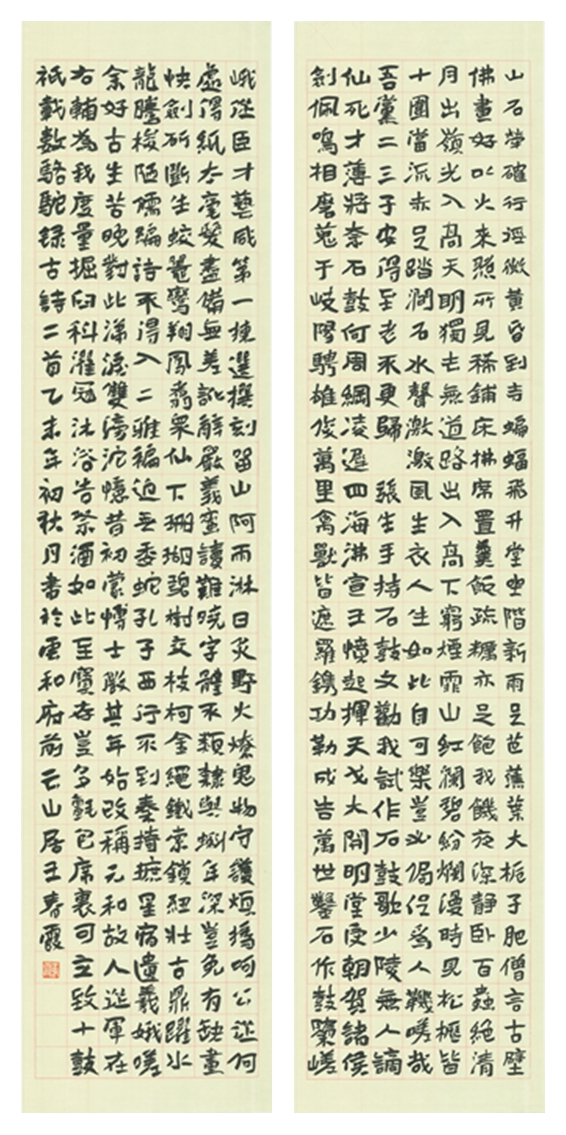 山石犖確行徑微黃昏到寺蝙蝠飛升堂坐階新雨足芭蕉葉大梔子肥僧言古壁
佛畫好以火來照所見稀鋪床拂席置羹飯疏糲亦足飽我饑夜深靜臥百蟲絕清
月出嶺光入高天明獨去無道路出入高下窮煙霏山紅澗碧紛爛漫時見松櫪皆
十圍當流赤足踏澗石水聲激激風生衣人生如此自可樂豈必侷促為人鞿嗟哉
吾黨二三子安得至老不更歸 張生手持石鼓文勸我試作石鼓歌少陵無人謫
仙死才薄將奈石鼓何周綱凌遲四海沸宣王憤起揮天戈大開明堂受朝賀諸侯
劍佩鳴相磨蒐于岐陽騁雄俊萬里禽獸皆遮羅鐫功勒成告萬世鑿石作鼓隳嵯
峨從臣才藝咸第一揀選撰刻留山阿雨淋日炙野火燎鬼物守護煩撝呵公從何
處得紙本毫髮盡備無差訛辭嚴義密讀難曉字體不類隸與蝌年深豈免有缺畫
快劍斫斷生蛟鼉鸞翔鳳翥眾仙下珊瑚碧樹交枝柯金繩鐵索鎖鈕壯古鼎躍水
龍騰梭陋儒編詩不得入二雅褊迫無委蛇孔子西行不到秦掎摭星宿遺羲娥嗟
余好古生苦晚對此涕淚雙滂沱憶昔初蒙博士徵其年始改稱元和故人從軍在
右輔為我度量掘臼科濯冠沐浴告祭酒如此至寶存豈多氈包席裹可立致十鼓
祇載數駱駝錄古詩二首乙未年初秋月書於雲和府前云山居王春霞